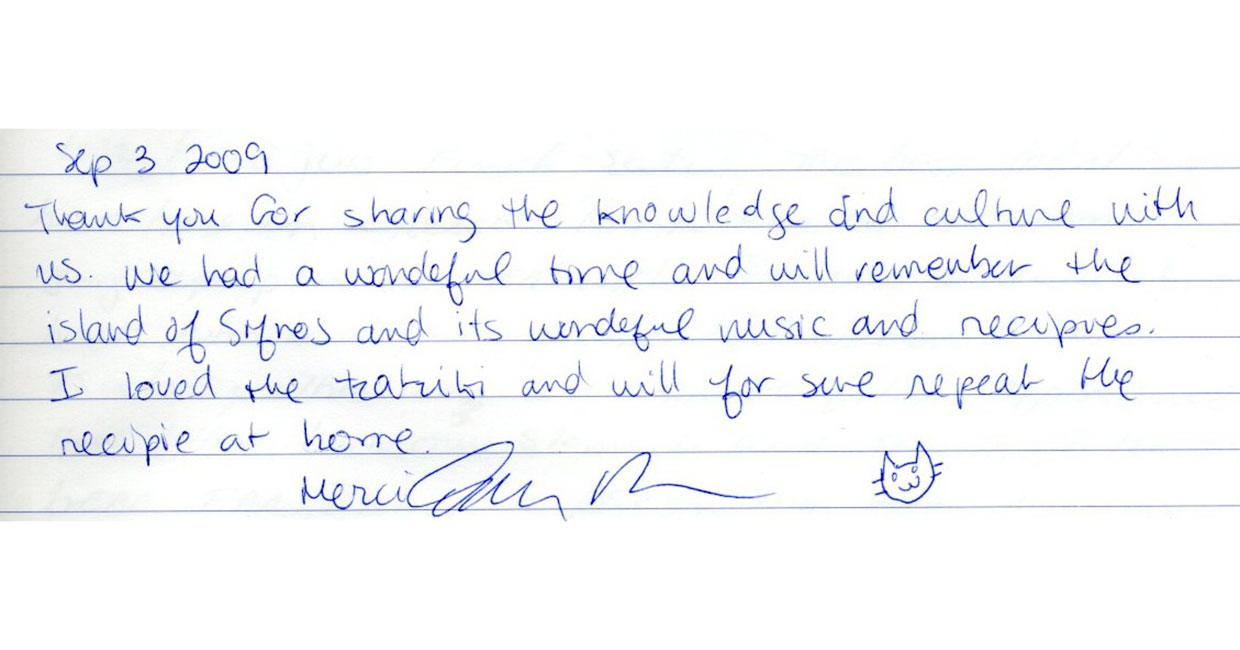 Sep 3 2009
Thank you for sharing the knowledge and culture with
us. We had a wondeful time and will remember the
island of Sifnos and its wondeful music and recipies.
I loved the tzatziki and will for sure repeat the
recipie at home.
Merci